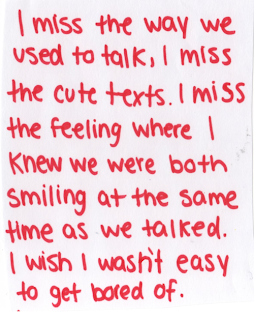 I miss the way we
used to talk, I miss
the cute texts. I miss
the feeling where I
knew we were both
smiling at the same
time as we talked.
I wish I wasn't easy
to get bored of.